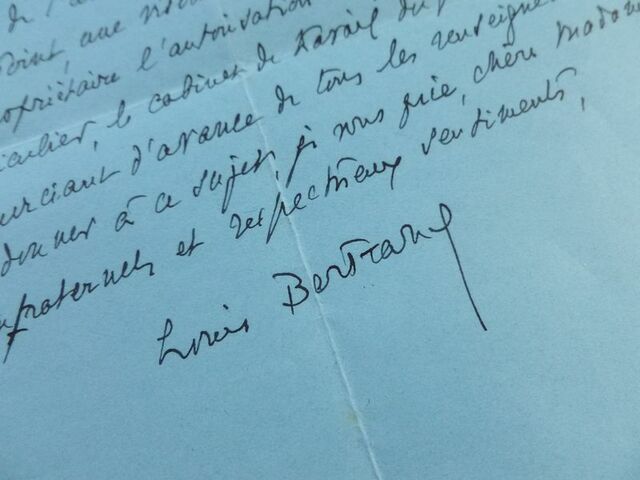 de l'a
point, que nous
propriétaire l'autorisation
iculier, le cabinet de travail du p
erciant d'avance de tous les renseigne
donner à ce sujet, je vous prie, chère Madame
nfraternels et respectueux sentiments,
Louis Bertrand